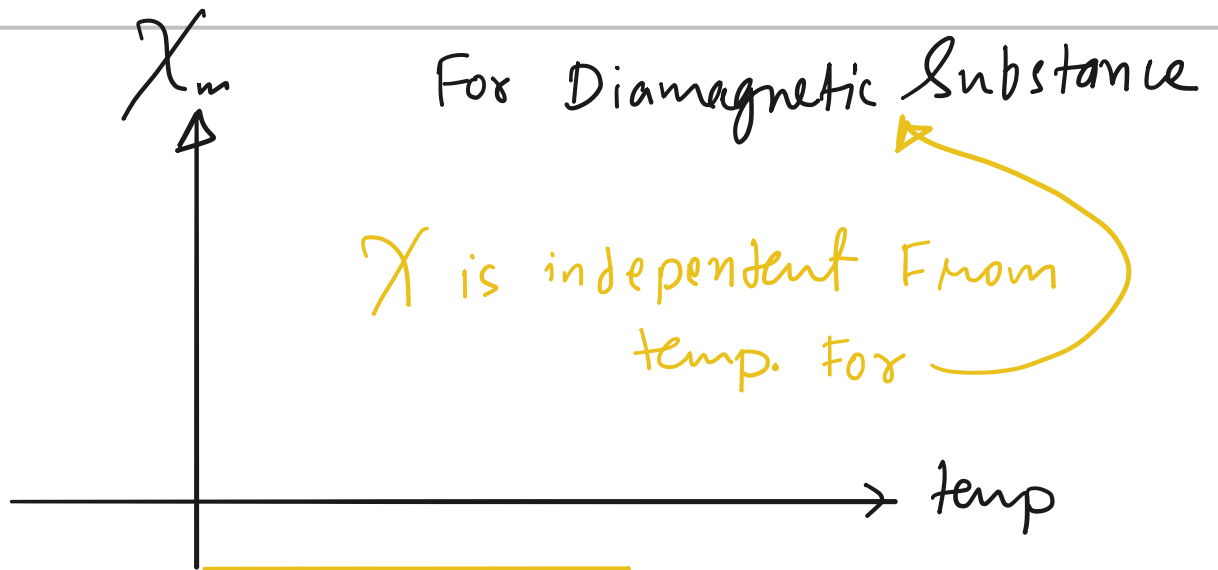 χm
For Diamagnetic Substance
χ is independent From
temp. For
temp